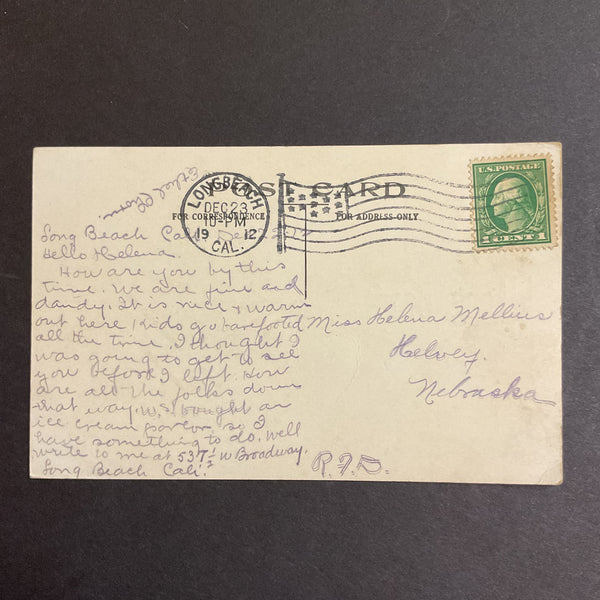 POST CARD
FOR CORRESPONDENCE
FOR ADDRESS ONLY
LONGBEACH
DEC 23
10-PM
19 12
CAL.
U.S. POSTAGE
1 CENT 1
Long Beach Cal. Dec 22-12
Hello Helena.
How are you by this
time. We are fine and
dandy. It is nice & warm
out here, Kids go barefooted
all the time. I thought I
was going to get to see
you before I left. How
are all the folks down
that way. We bought an
ice cream parlor so I
have something to do. Well
write to me at 537 1/2 W Broadway.
Long Beach Cali.
Ethel
Miss Helena Mellius
Helvey.
Nebraska
R.F.D.